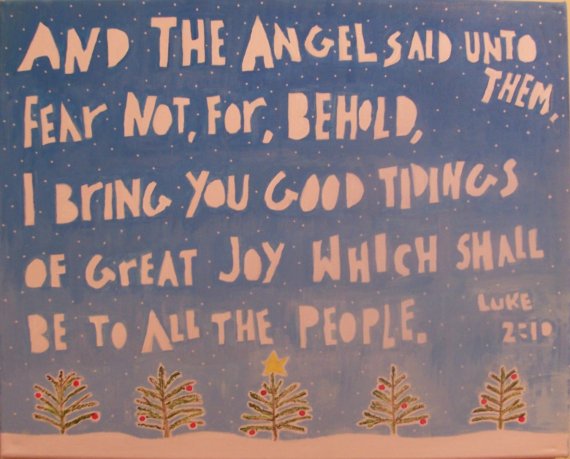 AND THE ANGEL SAID UNTO
THEM,
FEAr NOT, For, BEHOLD,
I BrING YOU GOOD TIDINGS
OF GrEAT JOY WHICH SHALL
BE TO ALL THE PEOPLE.
LUKE
2:10